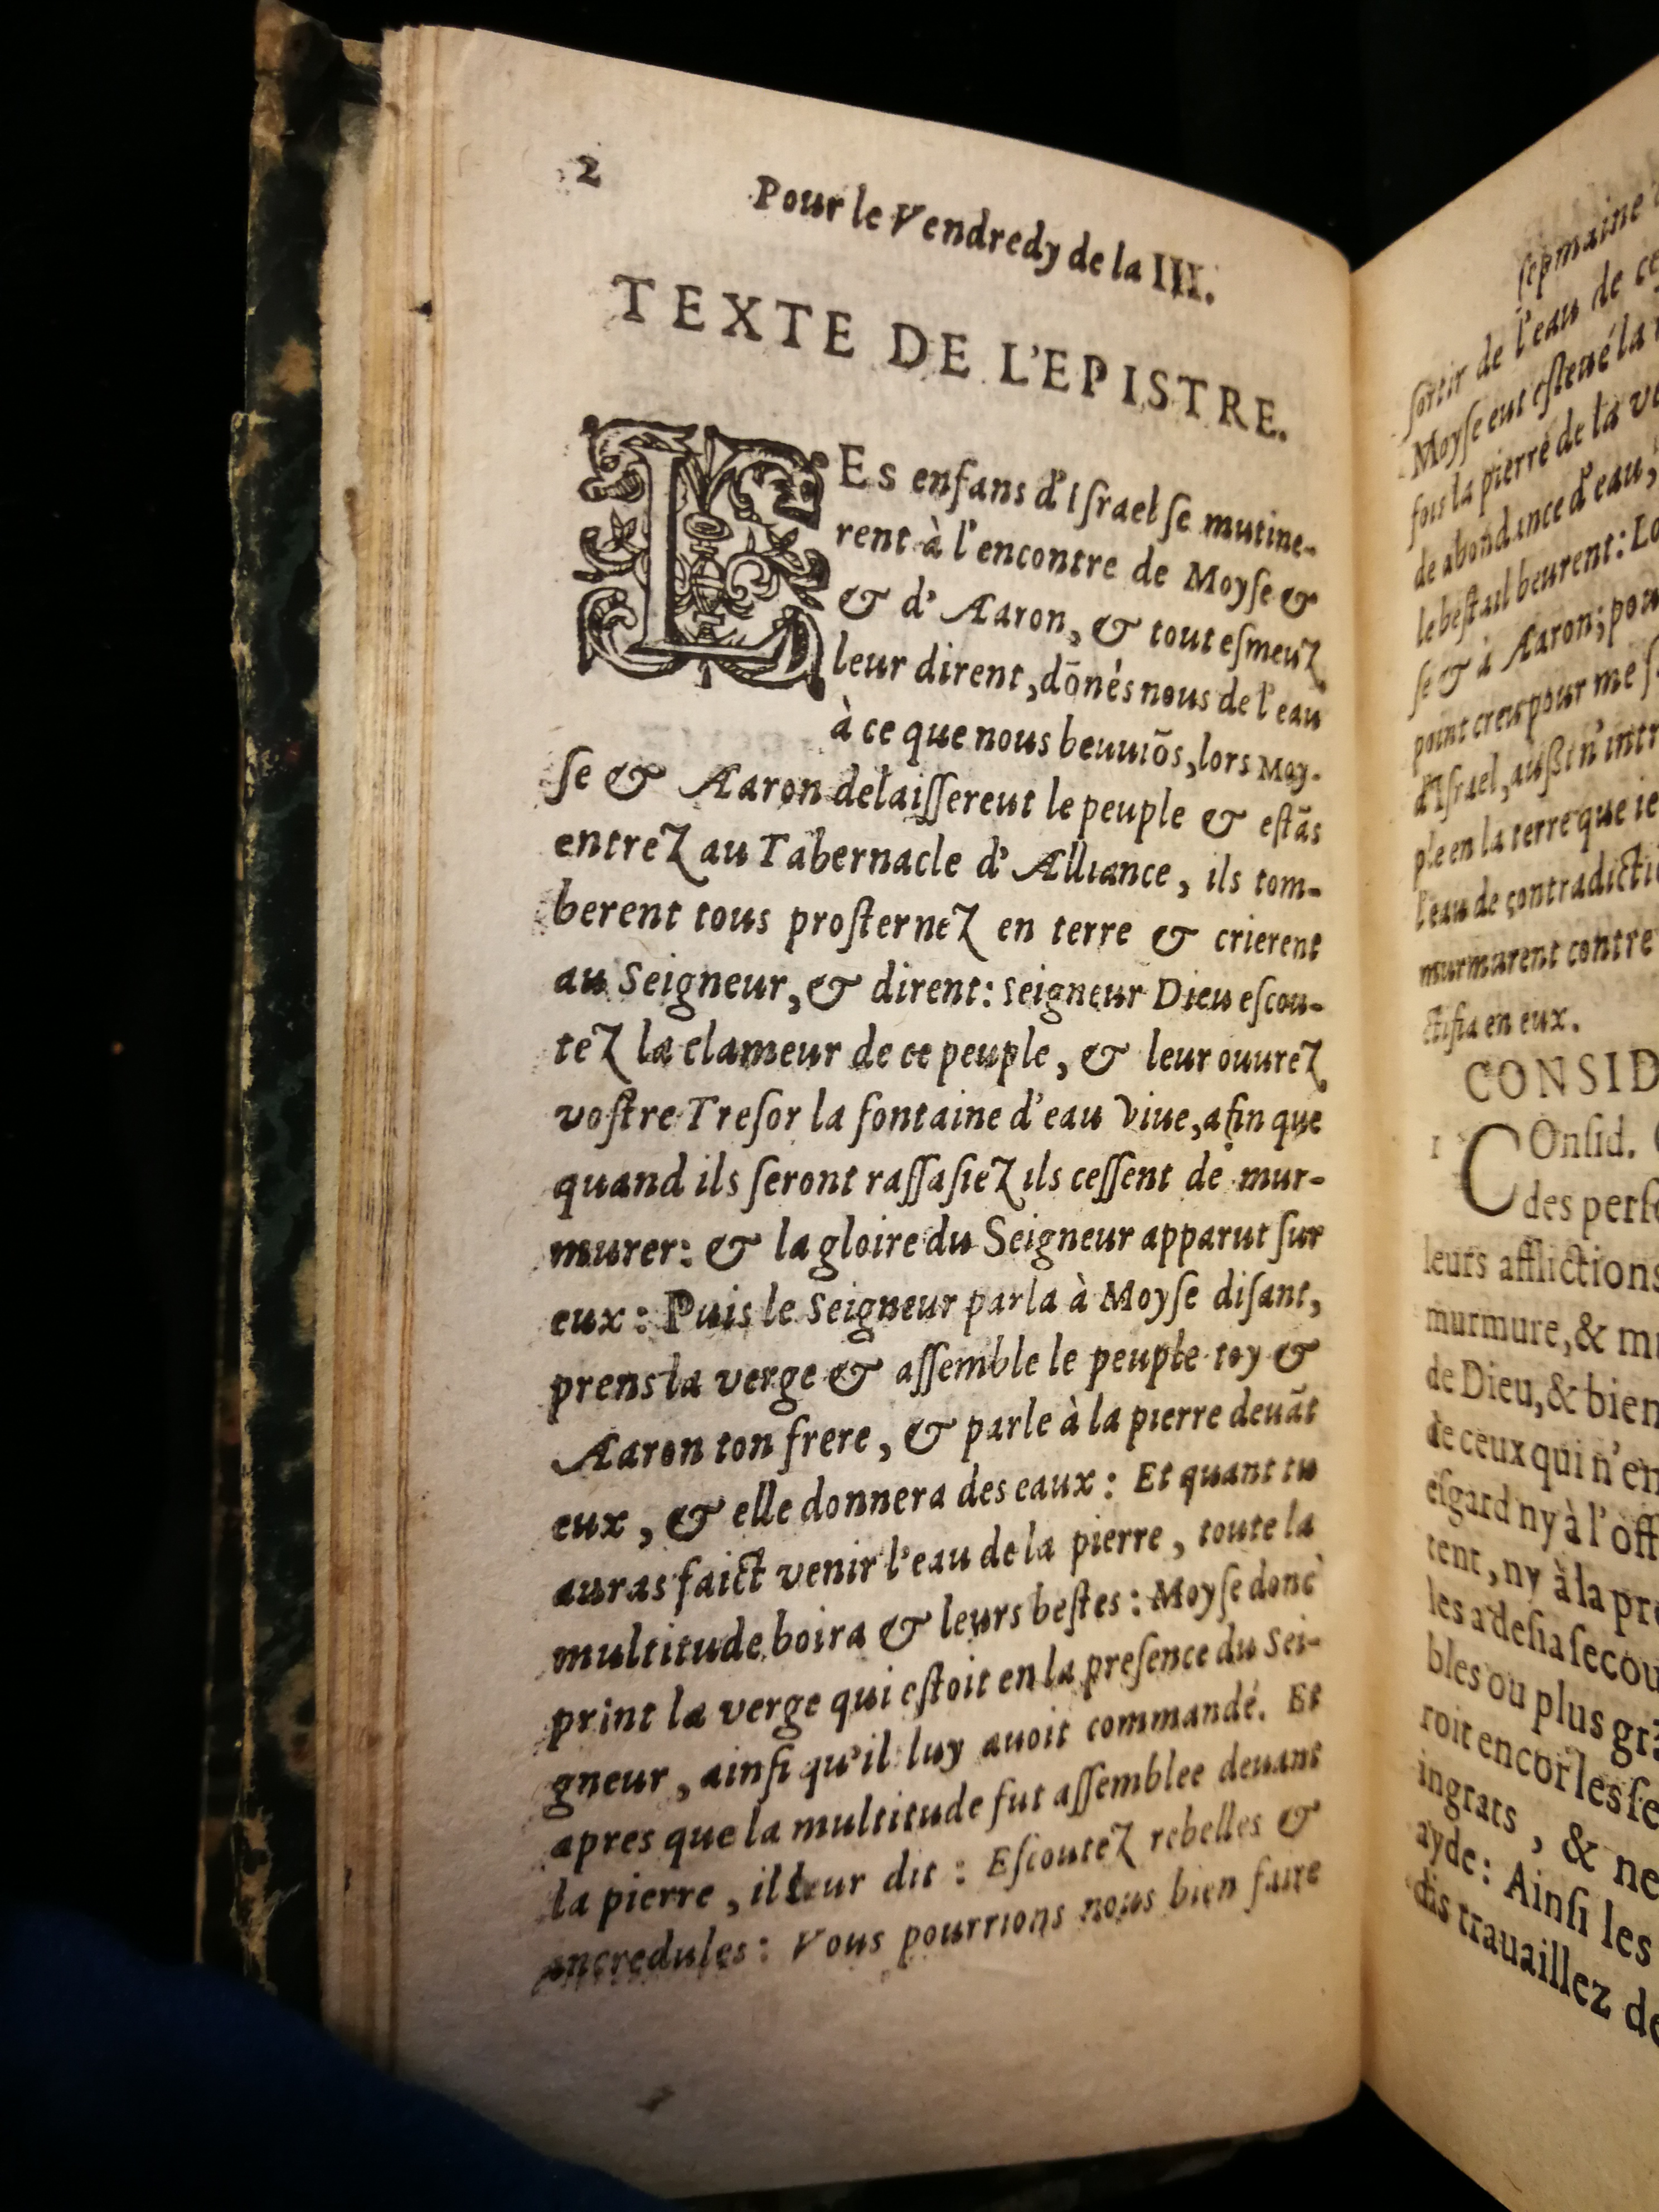 2
Pour le Vendredy de la III.
TEXTE DE L'EPISTRE.
LEs enfans d'Iſrael ſe mutine-
rent à l'encontre de Moyſe &
& d' Aaron, & tout eſmeuz
leur dirent, dōnés nous de l'eau
à ce que nous beuuiōs, lors Moy-
ſe & Aaron delaiſſereut le peuple & eſtās
entrez au Tabernacle d' Alliance, ils tom-
berent tous proſternez en terre & crierent
au Seigneur, & dirent: Seigneur Dieu eſcou-
tez la clameur de ce peuple, & leur ouurez
voſtre Treſor la fontaine d'eau viue, afin que
quand ils ſeront raſſaſiez ils ceſſent de mur-
murer: & la gloire du Seigneur apparut ſur
eux: Puis le Seigneur parla à Moyſe diſant,
prens la verge & aſſemble le peuple toy &
Aaron ton frere, & parle à la pierre deuāt
eux, & elle donnera des eaux: Et quant tu
auras faict venir l'eau de la pierre, toute la
multitude boira & leurs beſtes: Moyſe donc
print la verge qui eſtoit en la preſence du Sei-
gneur, ainſi qu'il luy auoit commandé. Et
apres que la multitude fut aſſemblee deuant
la pierre, il leur dit: Eſcoutez rebelles &
incredules: Vous pourrions nous bien faire
ſepmaine
ſortir de l'eau de ce
Moyſe eut eſleué la
fois la pierre de la
de abondance d'eau,
le beſtail beurent:
ſe & à Aaron; pour
point creu pour me
d'Iſrael, auſsi n'intr
ple en la terre que ie
l'eau de contradicti
murmurent contre
ctifia en eux.
CONSID
1 COnſid.
des perſ
leurs afflictions
murmure, & m
de Dieu, & bien
de ceux qui n'en
eſgard ny à l'off
tent, ny à la pr
les a deſia ſecou
bles ou plus gr
roit encor les ſe
ingrats, & ne
ayde: Ainſi les
dis trauaillez de